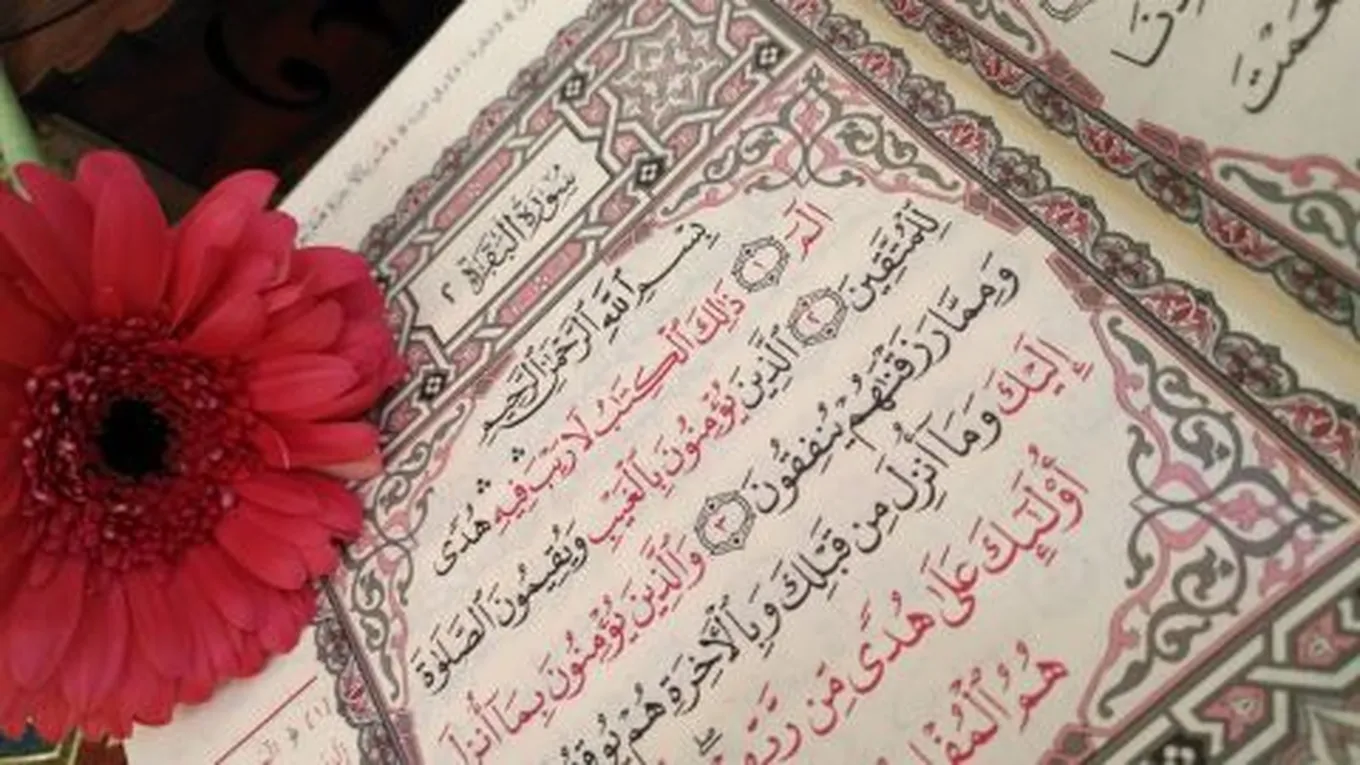 سُورَةُ الْبَقَرَةِ ٢
بِسْمِ ٱللَّهِ ٱلرَّحْمَٰنِ ٱلرَّحِيمِ
الٓمٓ ١ ذَٰلِكَ ٱلْكِتَٰبُ لَا رَيْبَ ۛ فِيهِ ۛ هُدًى
لِّلْمُتَّقِينَ ٢ ٱلَّذِينَ يُؤْمِنُونَ بِٱلْغَيْبِ وَيُقِيمُونَ ٱلصَّلَوٰةَ
وَمِمَّا رَزَقْنَٰهُمْ يُنفِقُونَ ٣ وَٱلَّذِينَ يُؤْمِنُونَ بِمَآ أُنزِلَ
إِلَيْكَ وَمَآ أُنزِلَ مِن قَبْلِكَ وَبِٱلْءَاخِرَةِ هُمْ
أُو۟لَٰٓئِكَ عَلَىٰ هُدًى مِّن
هُمُ